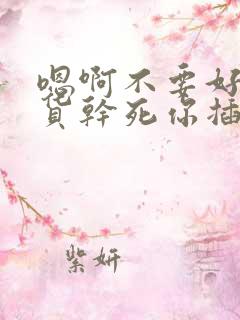 嗯啊不要好
貨幹死你插
紫妍